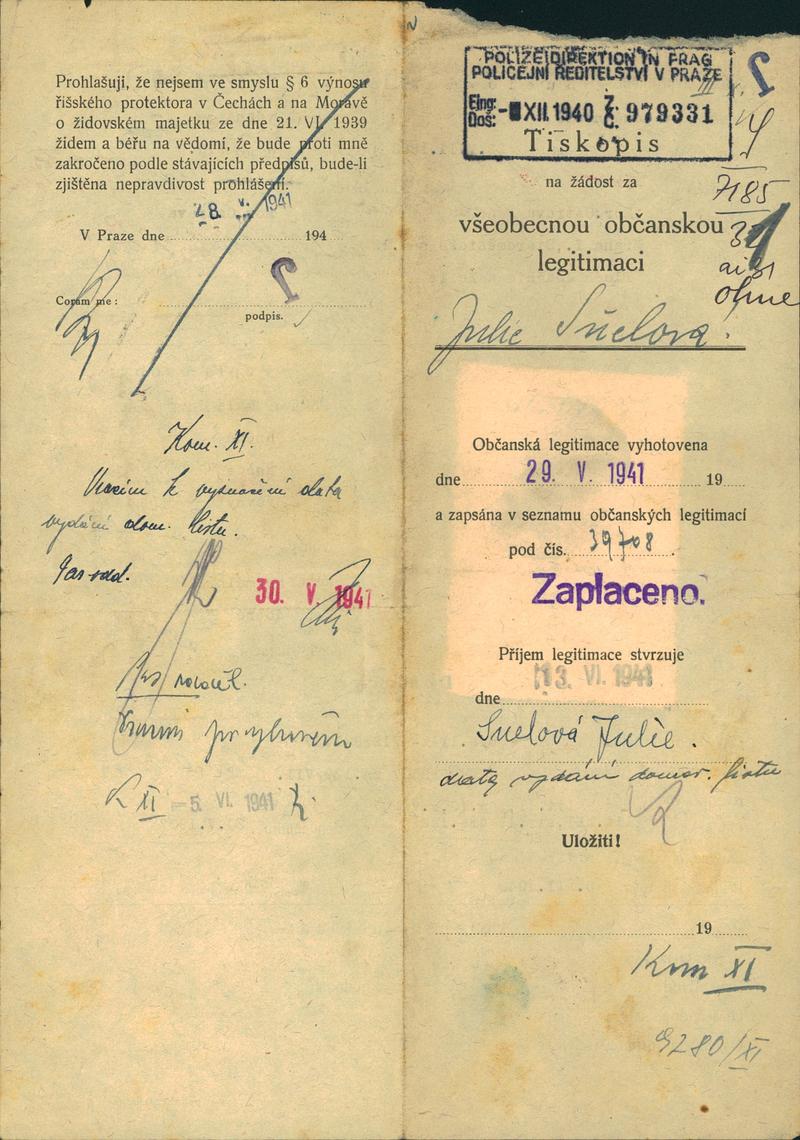 Prohlašuji, že nejsem ve smyslu § 6 výnosu
říšského protektora v Čechách a na Moravě
o židovském majetku ze dne 21. VI. 1939
židem a béřu na vědomí, že bude proti mně
zakročeno podle stávajících předpisů, bude-li
zjištěna nepravdivost prohlášení.
28. V. 1941
V Praze dne 194
Coram me:
podpis.
Kom. XI.
k vyznačení data
vydání dom. listu.
30. V. 1941
XI -5. VI. 1941
POLIZEIDIREKTION IN PRAG
POLICEJNÍ ŘEDITELSTVÍ V PRAZE
Eing: Doš: XII. 1940 979331
Tiskopis
na žádost za
7185
všeobecnou občanskou
legitimaci
ohne
Julie
Občanská legitimace vyhotovena
dne 29. V. 1941 19
a zapsána v seznamu občanských legitimací
pod čís. 39708.
Zaplaceno.
Příjem legitimace stvrzuje
13. VI. 1941
dne
Julie.
data vydání domov. listu
Uložiti!
19
Kom XI
9280/XI